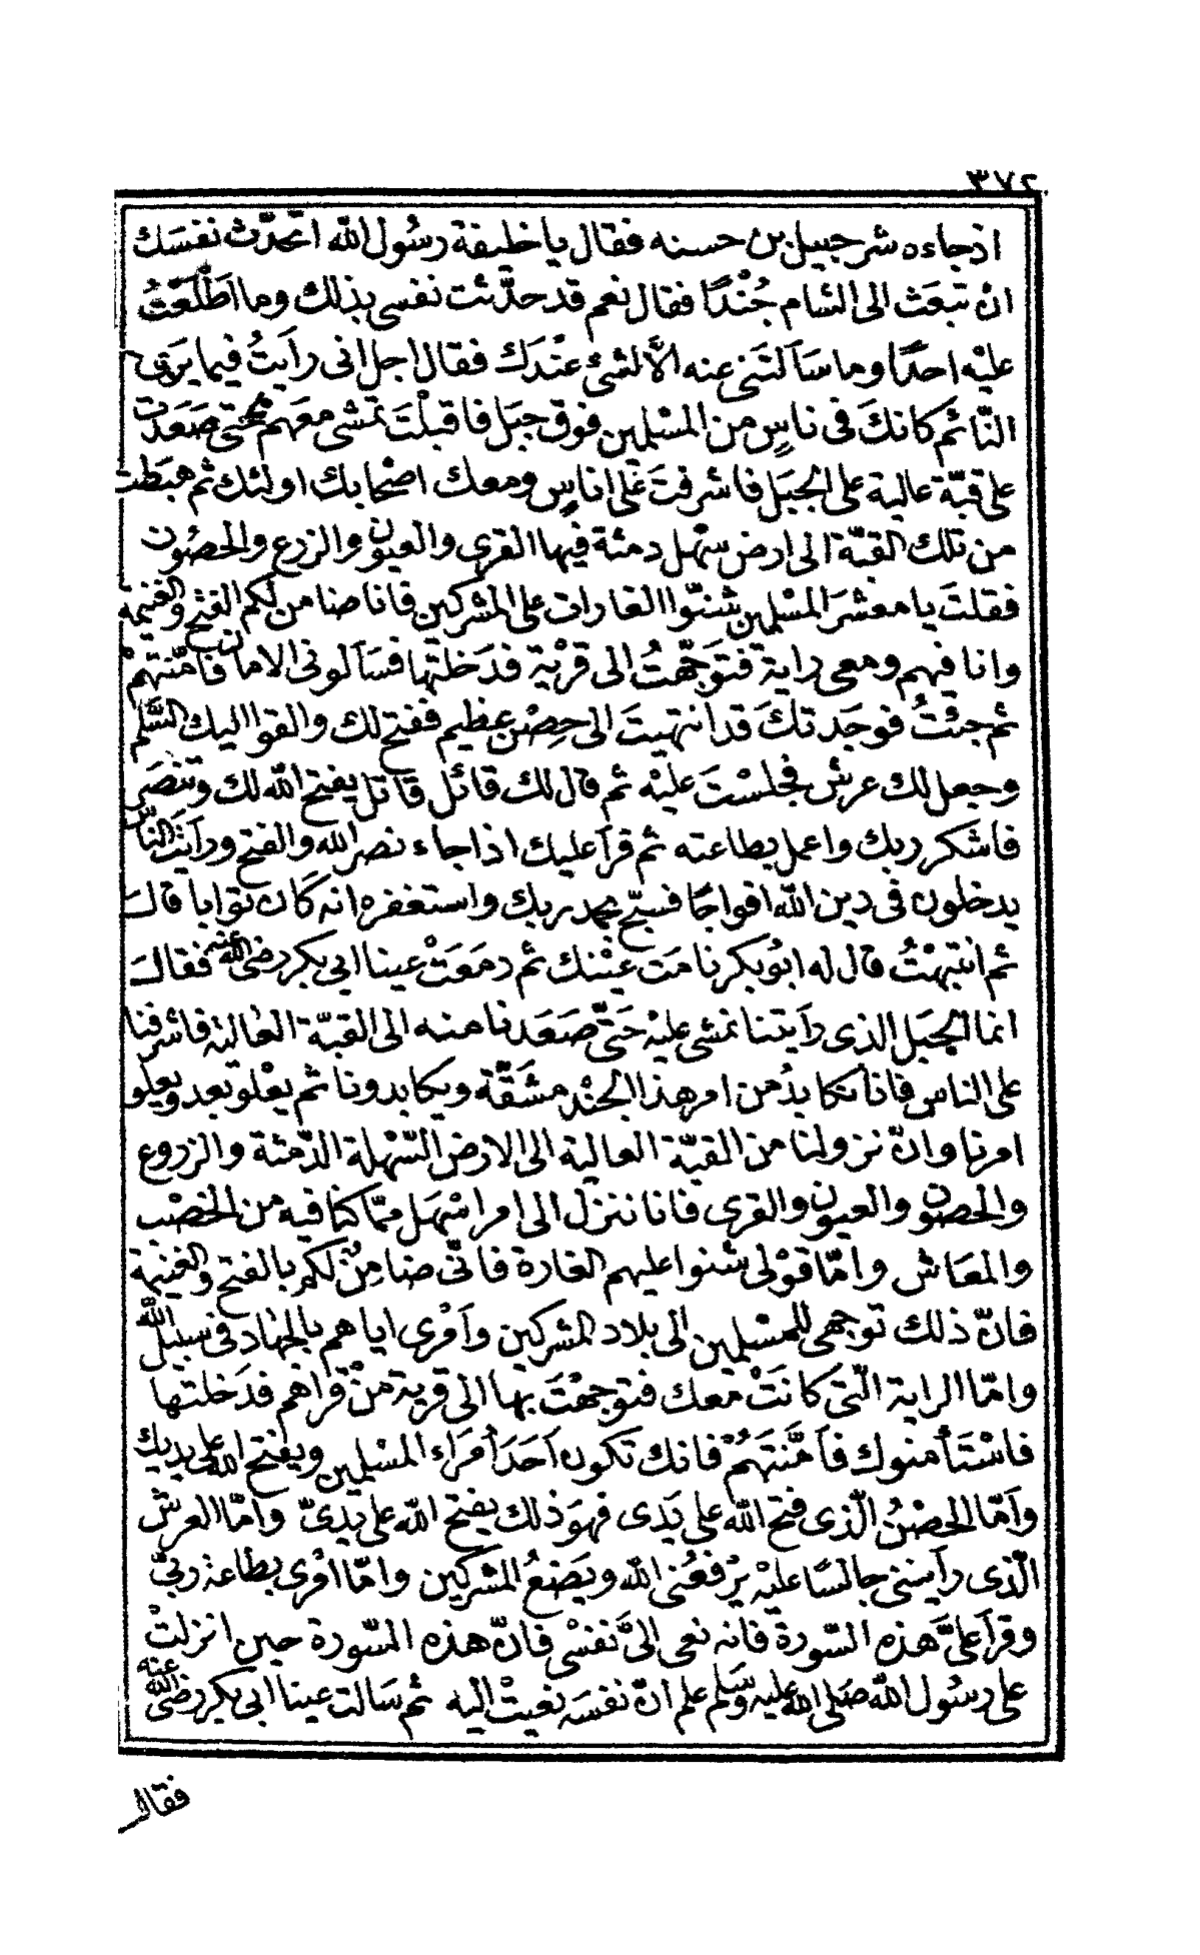 ٣٧٢
اذ جاءه شرحبيل بن حسنه فقال يا خليفة رسُول الله اتحدّث نفسَك
ان تبعَث الى الشام جُنْدًا فقال نعم قد حدَّثت نفسى بذلك وما اَطْلَعْتُ
عليْه احدًا وما سَاَلتَنى عنه الّا لشئ عنْدَك فقال اجل انى راَيتُ فيما يَرى
النّائم كانكَ فى ناسٍ من المسْلمين فوق جبَل فاقبلْتَ تمشى معَهم حتى صَعَدت
على قبّة عالية على الجبَل فاشرفتَ عَلى اناسٍ ومعك اصْحابك اولئك ثم هبَطت
من تلك القبّة الى ارض سهْل دمثة فيها القرى والعيون والزرع والحصُون
فقلتَ يا معشرَ المسْلمين شنّوا الغارات على المشركين فانا ضامن لكم الفتح والغنيمة
وانا فيهم ومعى راية فتوَجّهتُ الى قرْية فدَخلتها فسَاَلونى الامان فامّنتهمْ
ثم جئتُ فوجَدتكَ قد انتهيتَ الى حِصْن عظيم ففتح لك والقوا اليك السَّلم
وجعل لك عرش فجلسْتَ عليْه ثم قال لك قائل قاتل يفتح الله لك وتنصَر
فاشكر ربك واعمل بطاعته ثم قرأ عليك اذا جاء نصر الله والفتح وراَيتَ الناس
يدخلون فى دين الله افواجًا فسبّح بحمد ربك واستغفره انه كان توابا قال
ثم انتبهْتُ قال له ابُوبكر نامَت عيْنك ثم دمَعَتْ عينا ابى بكر رضى الله عنه فقالَ
انما الجبَل الذى راَيتنا نمشى عليْه حَتّى صَعَدنا منه الى القبّة العالية فاشرفنا
على الناس فانا نكابدُ من امر هذا الجنْد مشَقّة ويكابدونا ثم يعْلو بعد ويعلو
امرنا وانّ نزولنا من القبّة العالية الى الارض السّهلة الدّمثة والزروع
والحصون والعيون والقرى فانا ننزل الى امر اسْهل ممّا كنا فيه من الخصْب
والمعَاش وامّا قوْلى شنوا عليهم الغارة فانّى ضامِن لكم بالفتح والغنيمة
فانّ ذلك توجهى للمسْلمين الى بلاد المشركين واَمْرى اياهم بالجهاد فى سبيل الله
وامّا الراية التى كانَتْ معك فتوجهْتَ بها الى قرية منْ قراهم فدَخلتها
فاسْتَأمنوك فاَمَّنتَهُمْ فانك تكون اَحَدَ أمَراء المسْلمين ويفتح الله على يديك
واَمّا الحصْنُ الّذى فتح الله على يَدى فهوَ ذلك يفتح الله على يَدىّ وامّا العرش
الّذى راَيتنى جالسًا عليْه يرْفعُنى الله ويَضعُ المشركين وامّا امْرى بطاعة ربّى
وقراَ علىَّ هذه السّورة فانه نعى الىَّ نفسْى فانّ هذه السّورة حين انزلتْ
على رسُول الله صَلى الله عليْه وسَلم علم انّ نفسَه نعيتْ اليه ثم سَالت عينا ابى بكر رضى الله عنه
فقال